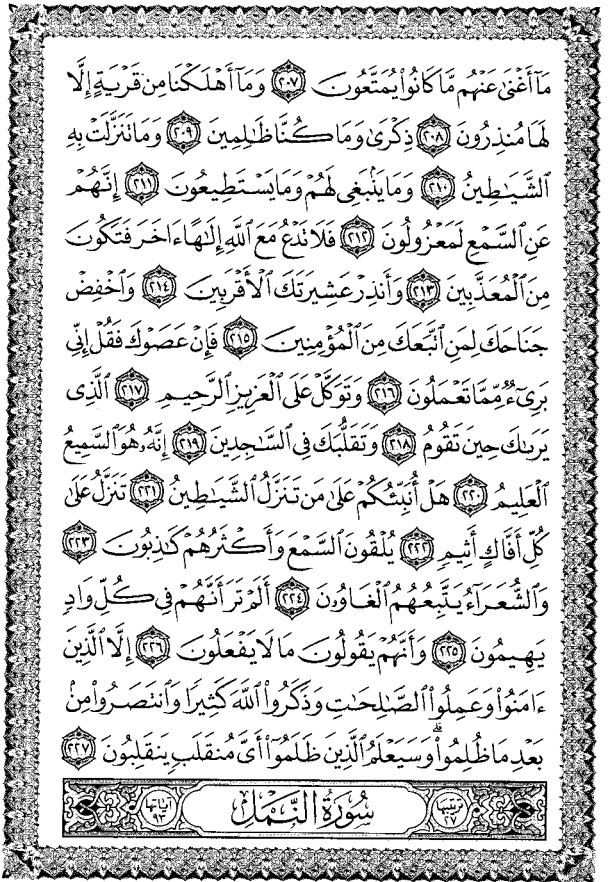 مَآ أَغْنَىٰ عَنْهُم مَّا كَانُوا۟ يُمَتَّعُونَ ٢٠٧ وَمَآ أَهْلَكْنَا مِن قَرْيَةٍ إِلَّا
لَهَا مُنذِرُونَ ٢٠٨ ذِكْرَىٰ وَمَا كُنَّا ظَٰلِمِينَ ٢٠٩ وَمَا تَنَزَّلَتْ بِهِ
ٱلشَّيَٰطِينُ ٢١٠ وَمَا يَنۢبَغِى لَهُمْ وَمَا يَسْتَطِيعُونَ ٢١١ إِنَّهُمْ
عَنِ ٱلسَّمْعِ لَمَعْزُولُونَ ٢١٢ فَلَا تَدْعُ مَعَ ٱللَّهِ إِلَٰهًا ءَاخَرَ فَتَكُونَ
مِنَ ٱلْمُعَذَّبِينَ ٢١٣ وَأَنذِرْ عَشِيرَتَكَ ٱلْأَقْرَبِينَ ٢١٤ وَٱخْفِضْ
جَنَاحَكَ لِمَنِ ٱتَّبَعَكَ مِنَ ٱلْمُؤْمِنِينَ ٢١٥ فَإِنْ عَصَوْكَ فَقُلْ إِنِّى
بَرِىٓءٌ مِّمَّا تَعْمَلُونَ ٢١٦ وَتَوَكَّلْ عَلَى ٱلْعَزِيزِ ٱلرَّحِيمِ ٢١٧ ٱلَّذِى
يَرَىٰكَ حِينَ تَقُومُ ٢١٨ وَتَقَلُّبَكَ فِى ٱلسَّٰجِدِينَ ٢١٩ إِنَّهُۥ هُوَ ٱلسَّمِيعُ
ٱلْعَلِيمُ ٢٢٠ هَلْ أُنَبِّئُكُمْ عَلَىٰ مَن تَنَزَّلُ ٱلشَّيَٰطِينُ ٢٢١ تَنَزَّلُ عَلَىٰ
كُلِّ أَفَّاكٍ أَثِيمٍ ٢٢٢ يُلْقُونَ ٱلسَّمْعَ وَأَكْثَرُهُمْ كَٰذِبُونَ ٢٢٣
وَٱلشُّعَرَآءُ يَتَّبِعُهُمُ ٱلْغَاوُۥنَ ٢٢٤ أَلَمْ تَرَ أَنَّهُمْ فِى كُلِّ وَادٍ
يَهِيمُونَ ٢٢٥ وَأَنَّهُمْ يَقُولُونَ مَا لَا يَفْعَلُونَ ٢٢٦ إِلَّا ٱلَّذِينَ
ءَامَنُوا۟ وَعَمِلُوا۟ ٱلصَّٰلِحَٰتِ وَذَكَرُوا۟ ٱللَّهَ كَثِيرًا وَٱنتَصَرُوا۟ مِنۢ
بَعْدِ مَا ظُلِمُوا۟ ۗ وَسَيَعْلَمُ ٱلَّذِينَ ظَلَمُوٓا۟ أَىَّ مُنقَلَبٍ يَنقَلِبُونَ ٢٢٧
ترتيبها ٢٧ سُورَةُ النَّمْلِ آياتها ٩٣